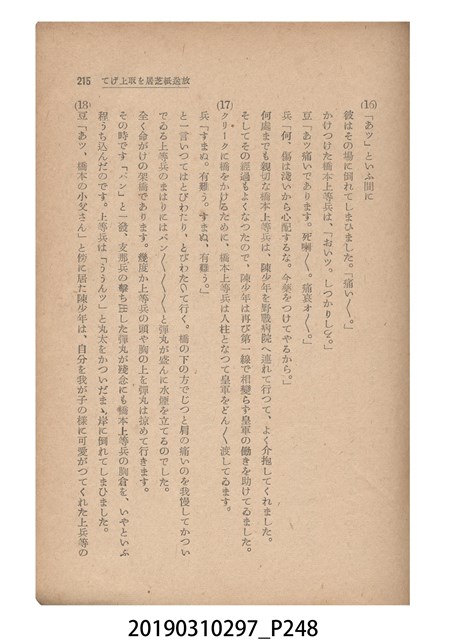 215　てげ上取を居芝紙造放
(16)
「あツ」といふ間に
彼はその場に倒れてしまひました。「痛い〳〵。」
かけつけた橋本上等兵は、「おいツ。しつかりしろ。」
豆「あツ痛いであります。死喇〳〵。痛哀オ〳〵。」
兵「何、傷は淺いから心配するな。今藥をつけてやるから。」
何處までも親切な橋本上等兵は、陳少年を野戰病院へ連れて行つて、よく介抱してくれました。
そしてその經過もよくなつたので、陳少年は再び第一線で相變らず皇軍の働きを助けてゐました。
(17)
クリークに橋をかけるために、橋本上等兵は人柱となつて皇軍をどん〳〵渡してゐます。
兵「すまぬ。有難う。すまぬ、有難う。」
と一言いつてはとびわたり、とびわたいて行く。橋の下の方でじつと肩の痛いのを我慢してかつい
でゐる上等兵のまはりにはパン〳〵〳〵〳〵と彈丸が盛んに水煙を立てるのでした。
全く命がけの架橋であります。幾度か上等兵の頭や胸の上を彈丸は掠めて行きます。
その時です「パン」と一發、支那兵の擊ち出した彈丸が殘念にも橋本上等兵の胸倉を、いやといふ
程うち込んだのです。上等兵は「ううんツ」と丸太をかついだまゝ岸に倒れてしまひました。
(18)
豆「あツ、橋本の小父さん」と傍に居た陳少年は、自分を我が子の樣に可愛がつてくれた上兵等の
20190310297_P248